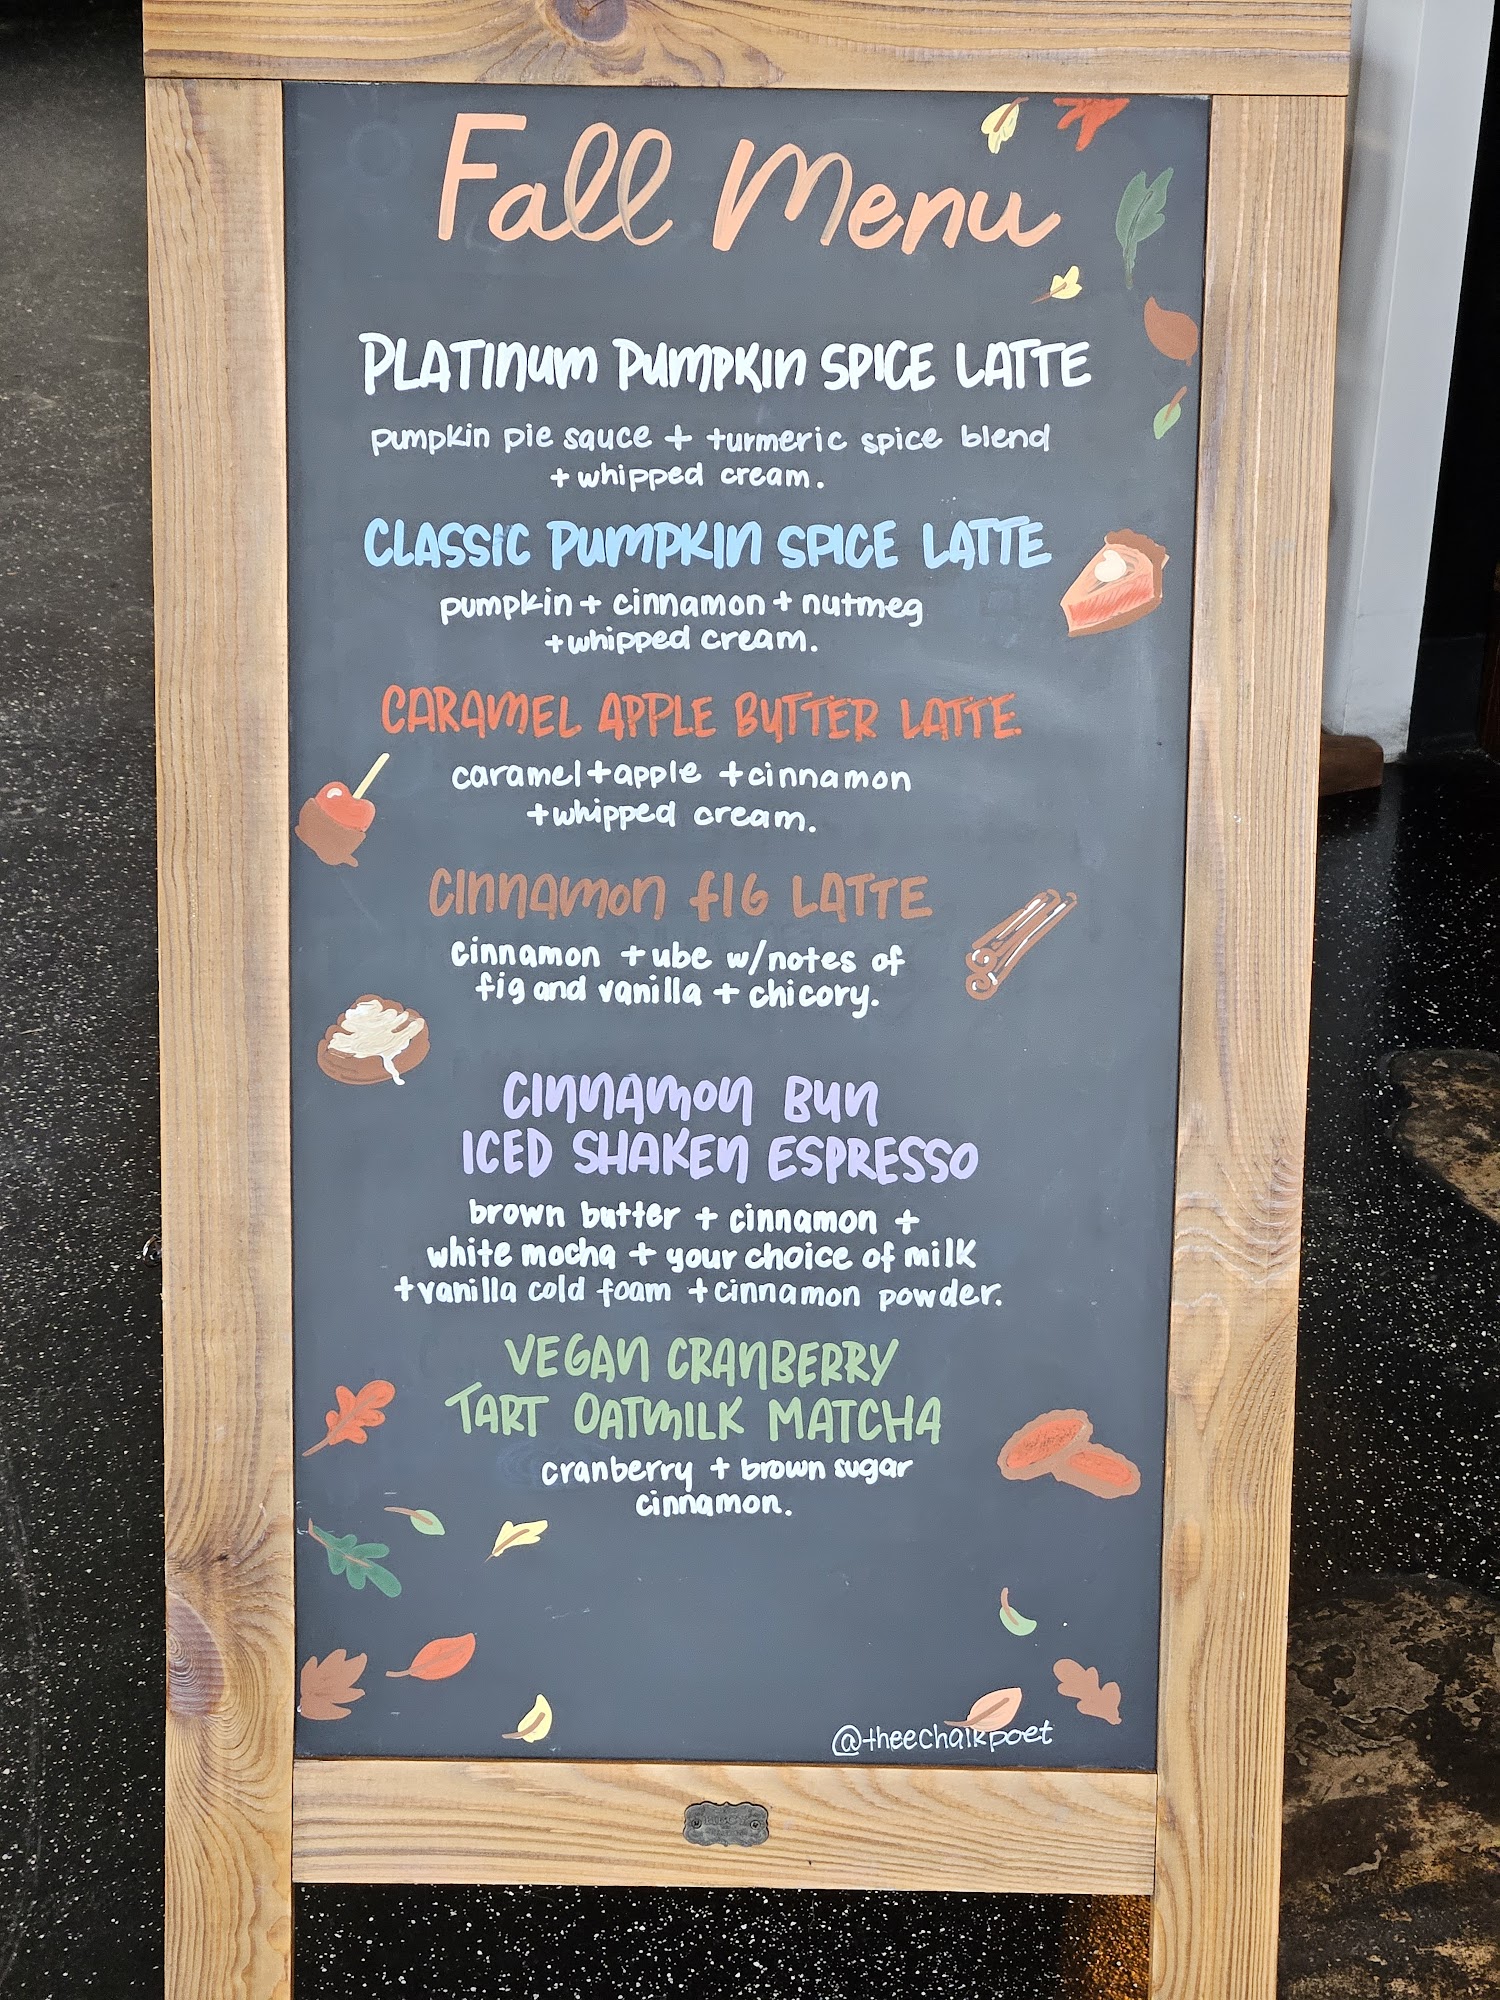 Fall Menu
PLATINUM PUMPKIN SPICE LATTE
pumpkin pie sauce + turmeric spice blend
+ whipped cream.
CLASSIC PUMPKIN SPICE LATTE
pumpkin + cinnamon + nutmeg
+whipped cream.
CARAMEL APPLE BUTTER LATTE.
caramel+apple +cinnamon
+whipped cream.
CINNAMON FIG LATTE
cinnamon + ube w/notes of
fig and vanilla + chicory.
CINNAMON BUN
ICED SHAKEN ESPRESSO
brown butter + cinnamon +
white mocha + your choice of milk
+vanilla cold foam +cinnamon powder.
VEGAN CRANBERRY
TART OATMILK MATCHA
cranberry + brown sugar
cinnamon.
@theechalkpoet